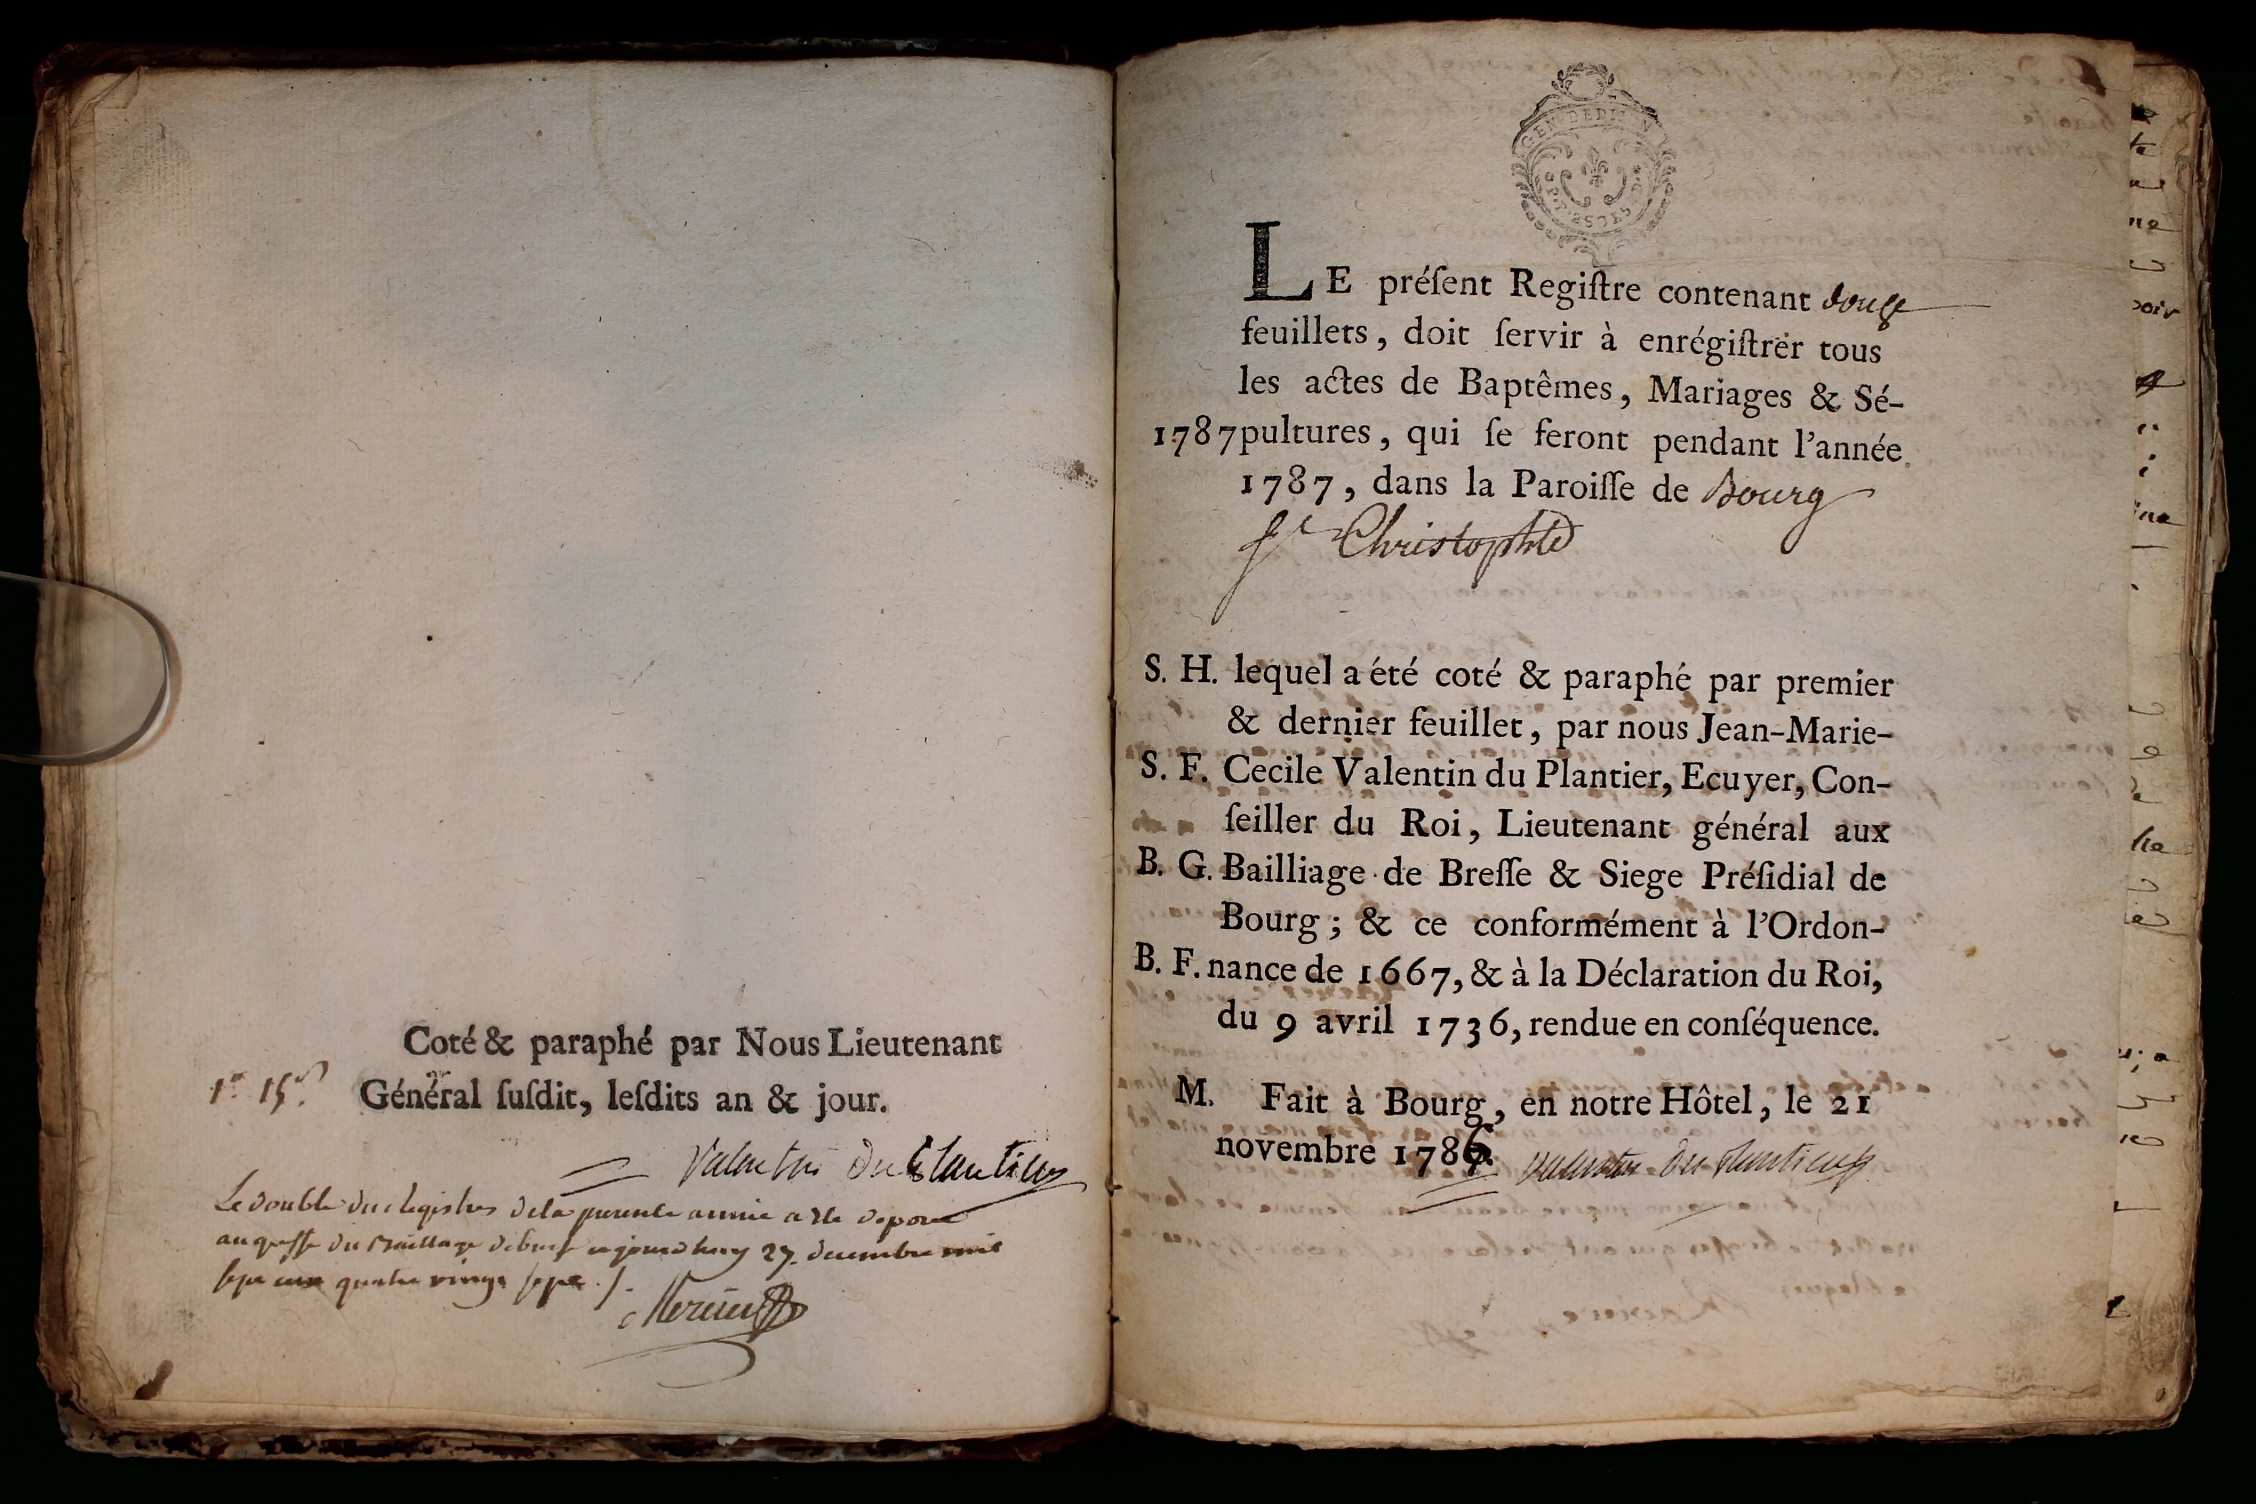 Coté & paraphé par Nous Lieutenant
Général ſuſdit, leſdits an & jour.
Valentin du Plantier
Le double du registre de la presente année a été deposé
au greffe du Bailliage de bresse aujourdhuy 27. decembre mil
sept cent quatre vingt sept ./.
GEN DE DIJON
LE préſent Regiſtre contenant douze
feuillets, doit ſervir à enrégiſtrer tous
les actes de Baptêmes, Mariages & Sé-
1787 pultures, qui ſe feront pendant l'année
1787, dans la Paroiſſe de Bourg
St Christophle
S. H. lequel a été coté & paraphé par premier
& dernier feuillet, par nous Jean-Marie-
S. F. Cecile Valentin du Plantier, Ecuyer, Con-
ſeiller du Roi, Lieutenant général aux
B. G. Bailliage de Breſſe & Siege Préſidial de
Bourg ; & ce conformément à l'Ordon-
B. F. nance de 1667, & à la Déclaration du Roi,
du 9 avril 1736, rendue en conſéquence.
M. Fait à Bourg, en notre Hôtel, le 21
novembre 1786. Valentin du Plantier